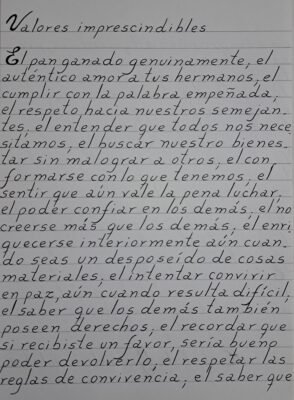 Valores imprescindibles
El pan ganado genuinamente, el
auténtico amor a tus hermanos, el
cumplir con la palabra empeñada,
el respeto hacia nuestros semejan-
tes, el entender que todos nos nece
sitamos, el buscar nuestro bienes-
tar sin malograr a otros, el con
formarse con lo que tenemos, el
sentir que aún vale la pena luchar,
el poder confiar en los demás, el no
creerse más que los demás, el enri
quecerse interiormente aún cuan-
do seas un desposeído de cosas
materiales, el intentar convivir
en paz, aún cuando resulta difícil,
el saber que los demás también
poseen derechos, el recordar que
si recibiste un favor, sería bueno
poder devolverlo, el respetar las
reglas de convivencia, el saber que